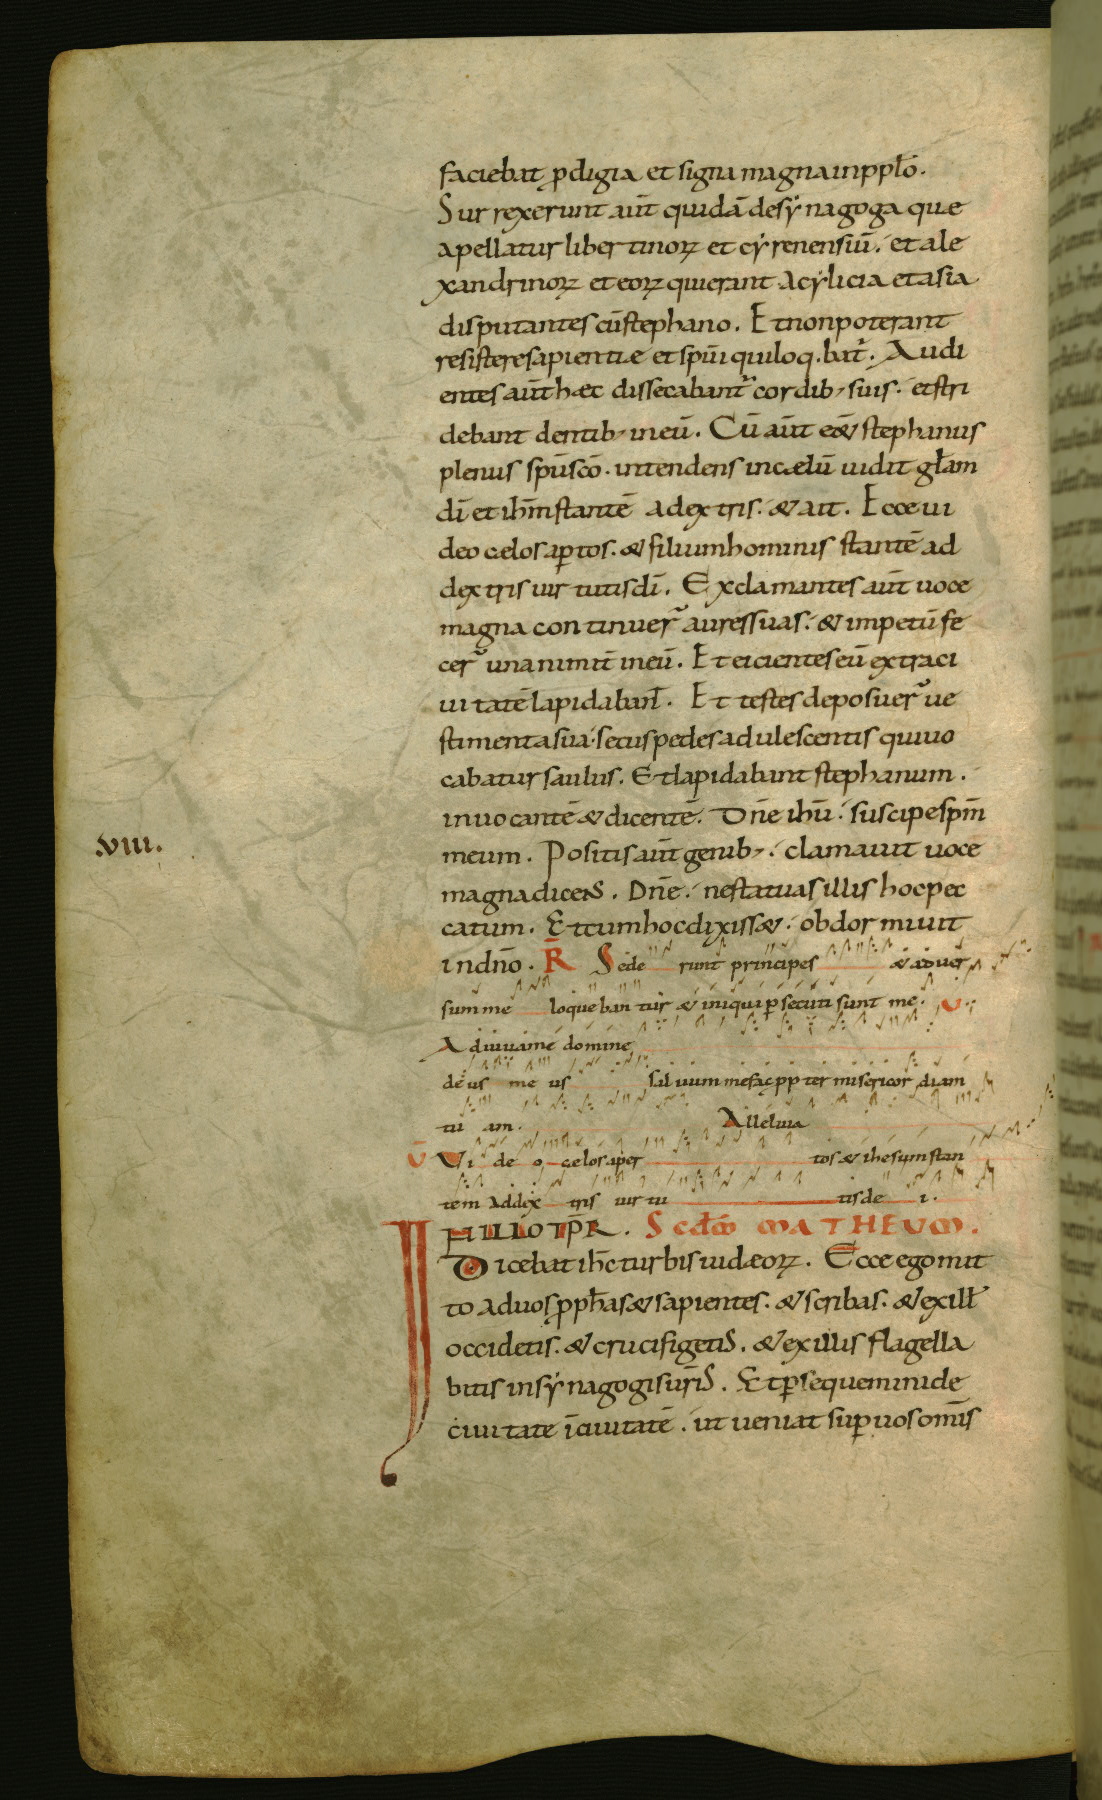 faciebat ꝓdigia et signa magna in ppło.
Surrexerunt aut̄ quidā de sẏnagoga que
apellatur libertinoꝝ et cẏrenensiū. et ale
xandrinoꝝ et eoꝝ qui erant a cẏlicia et asia
disputantes cū stephano. Et non poterant
resistere sapientiae et spūi qui loq.bat̄. Audi
entes aut̄ haec dissecabant̄ cordib; suis. et stri
debant dentib; in eū. Cū aut̄ eēt stephanus
plenus spū scō. intendens in caelū uidit głam
dī et ihm̄ stantē a dextris. & ait. Ecce ui
deo celos aꝑtos. & filium hominis stantē ad
dextris uirtutis dī. Exclamantes aut̄ uoce
magna continuer̄ aures suas. & impetū fe
cer̄ unanimit̄ in eū. Et eicientes eū extra ci
uitatē lapidabant̄. Et testes deposuer̄ ue
stimenta sua. secus pedes adulescentis qui uo
cabatur saulus. Et lapidabant stephanum.
inuocantē & dicentē. Dn̄e ihū. suscipe spm̄
.viii.
meum. Positis aut̄ genib;. clamauit uoce
magna dicens. Dn̄e. ne statuas illis hoc pec
catum. Et cum hoc dixiss&. obdormiuit
in dn̄o. R̄ Sede runt principes & aduer
sum me loqueban tur & iniqui ꝑsecuti sunt me. V.
Adiuua me domine
deus me us saluum me fac ꝓpter misericordiam
tu am. Alleluia
V̄ Vi de o celos aper tos & ihesum stan
tem ad dex tris uir tu tis de i.
IN ILLO TP̄R. Scd̄m MATHEUM.
Dicebat ihc̄ turbis iudaeoꝝ. Ecce ego mit
to ad uos ꝓph̄as & sapientes. & scribas. & ex illis
occidetis. & crucifigetis. & ex illis flagella
bitis in sẏnagogis ur̄is. Et ꝑsequemini de
ciuitate ī ciuitatē. ut ueniat suꝑ uos omīs